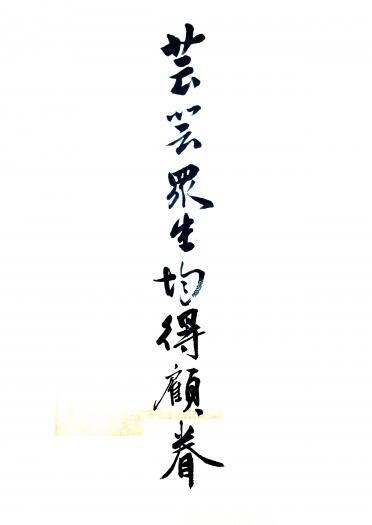 芸芸眾生均得顧眷